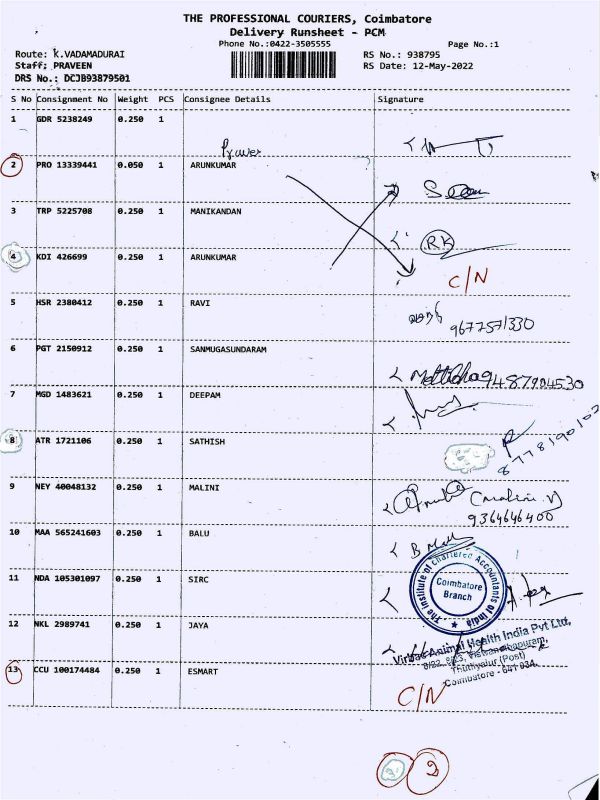 THE PROFESSIONAL COURIERS, Coimbatore
Delivery Runsheet - PCM
Phone No.:0422-3505555 Page No.:1
Route: K.VADAMADURAI RS No.: 938795
Staff: PRAVEEN RS Date: 12-May-2022
DRS No.: DCJB93879501
S No Consignment No Weight PCS Consignee Details Signature
1 GDR 5238249 0.250 1
2 PRO 13339441 0.050 1 ARUNKUMAR
3 TRP 5225708 0.250 1 MANIKANDAN RK
4 KDI 426699 0.250 1 ARUNKUMAR C/N
5 HSR 2380412 0.250 1 RAVI
9677571330
6 PGT 2150912 0.250 1 SANMUGASUNDARAM
9487904530
7 MGD 1483621 0.250 1 DEEPAM
8 ATR 1721106 0.250 1 SATHISH
9 NEY 40048132 0.250 1 MALINI
9364646400
10 MAA 565241603 0.250 1 BALU
11 NDA 105301097 0.250 1 SIRC
The Institute of Chartered Accountants of India
Coimbatore
Branch
12 NKL 2989741 0.250 1 JAYA
Virbac Animal Health India Pvt Ltd,
Thuthiyalur (Post)
Coimbatore - 641 034.
13 CCU 100174484 0.250 1 ESMART
C/N
2